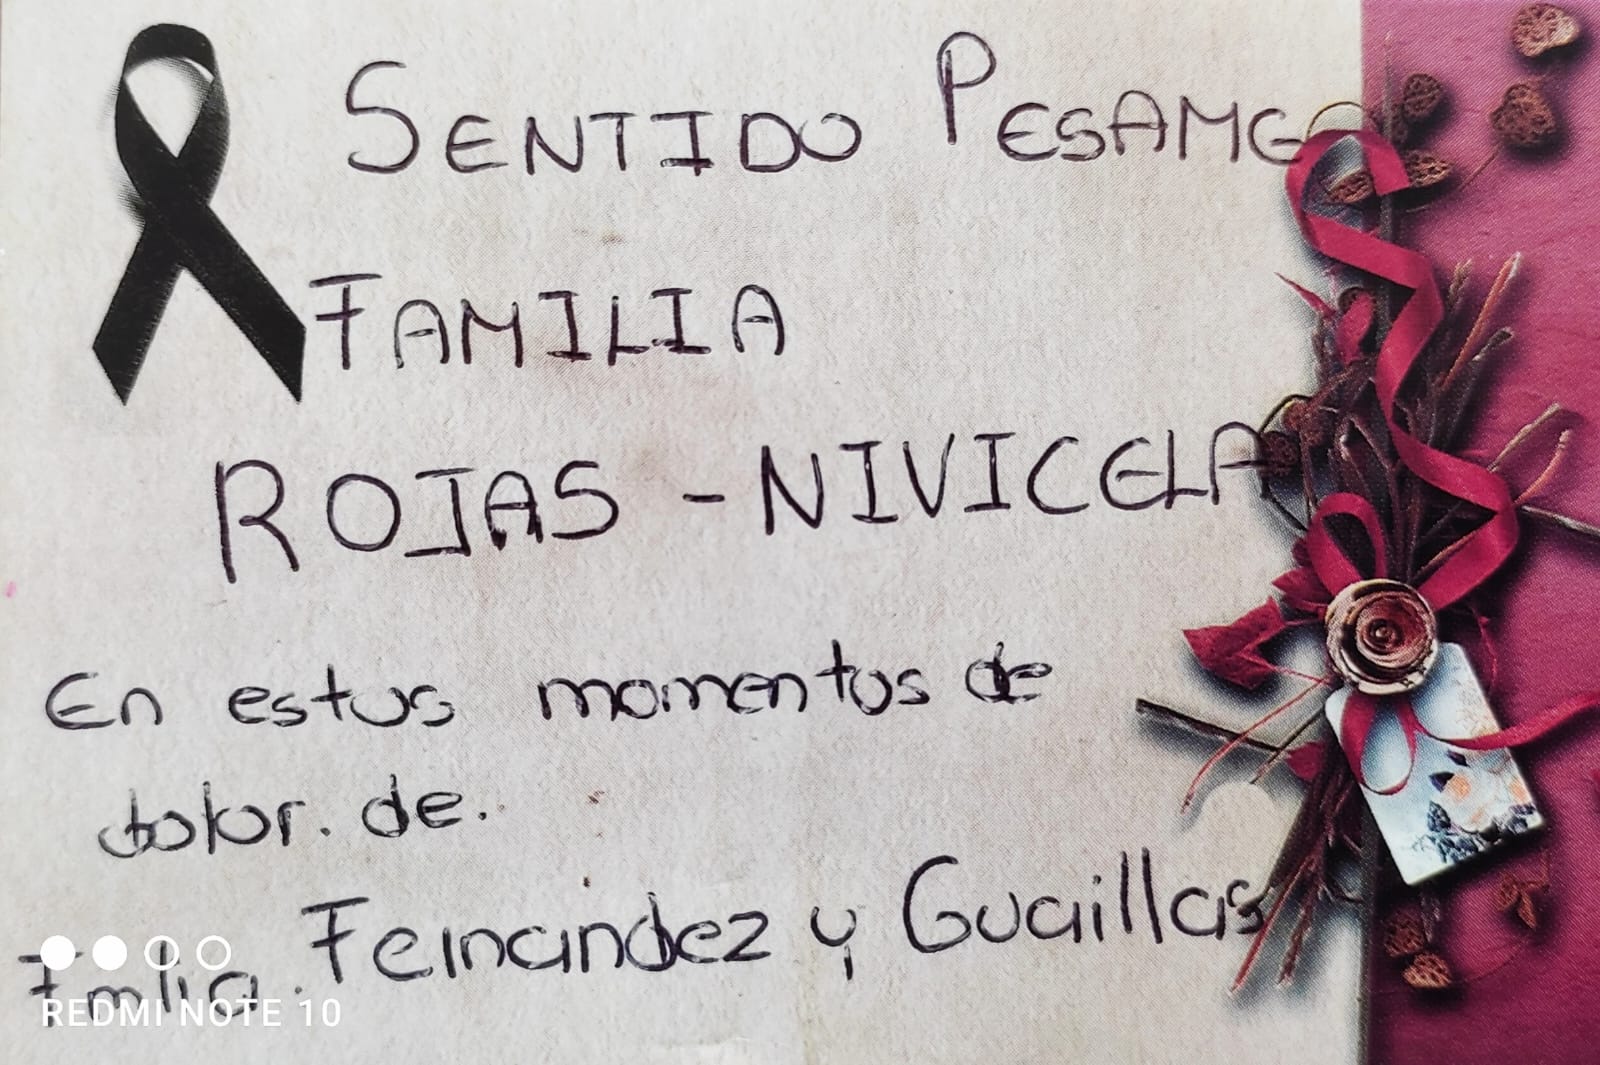 SENTIDO PESAME
FAMILIA
ROJAS - NIVICELA
En estos momentos de
dolor. de.
Fmlia. Fernandez y Guaillas
REDMI NOTE 10